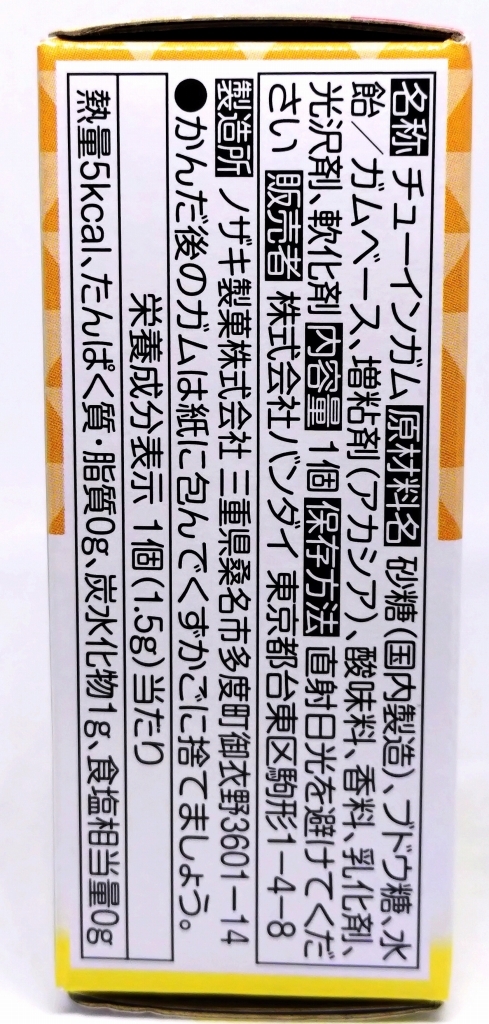 名称 チューインガム 原材料名 砂糖(国内製造)、ブドウ糖、水
飴／ガムベース、増粘剤(アカシア)、酸味料、香料、乳化剤、
光沢剤、軟化剤 内容量 1個 保存方法 直射日光を避けてくだ
さい 販売者 株式会社バンダイ 東京都台東区駒形1-4-8
製造所 ノザキ製菓株式会社 三重県桑名市多度町御衣野3601-14
●かんだ後のガムは紙に包んでくずかごに捨てましょう。
栄養成分表示 1個(1.5g)当たり
熱量5kcal、たんぱく質・脂質0g、炭水化物1g、食塩相当量0g